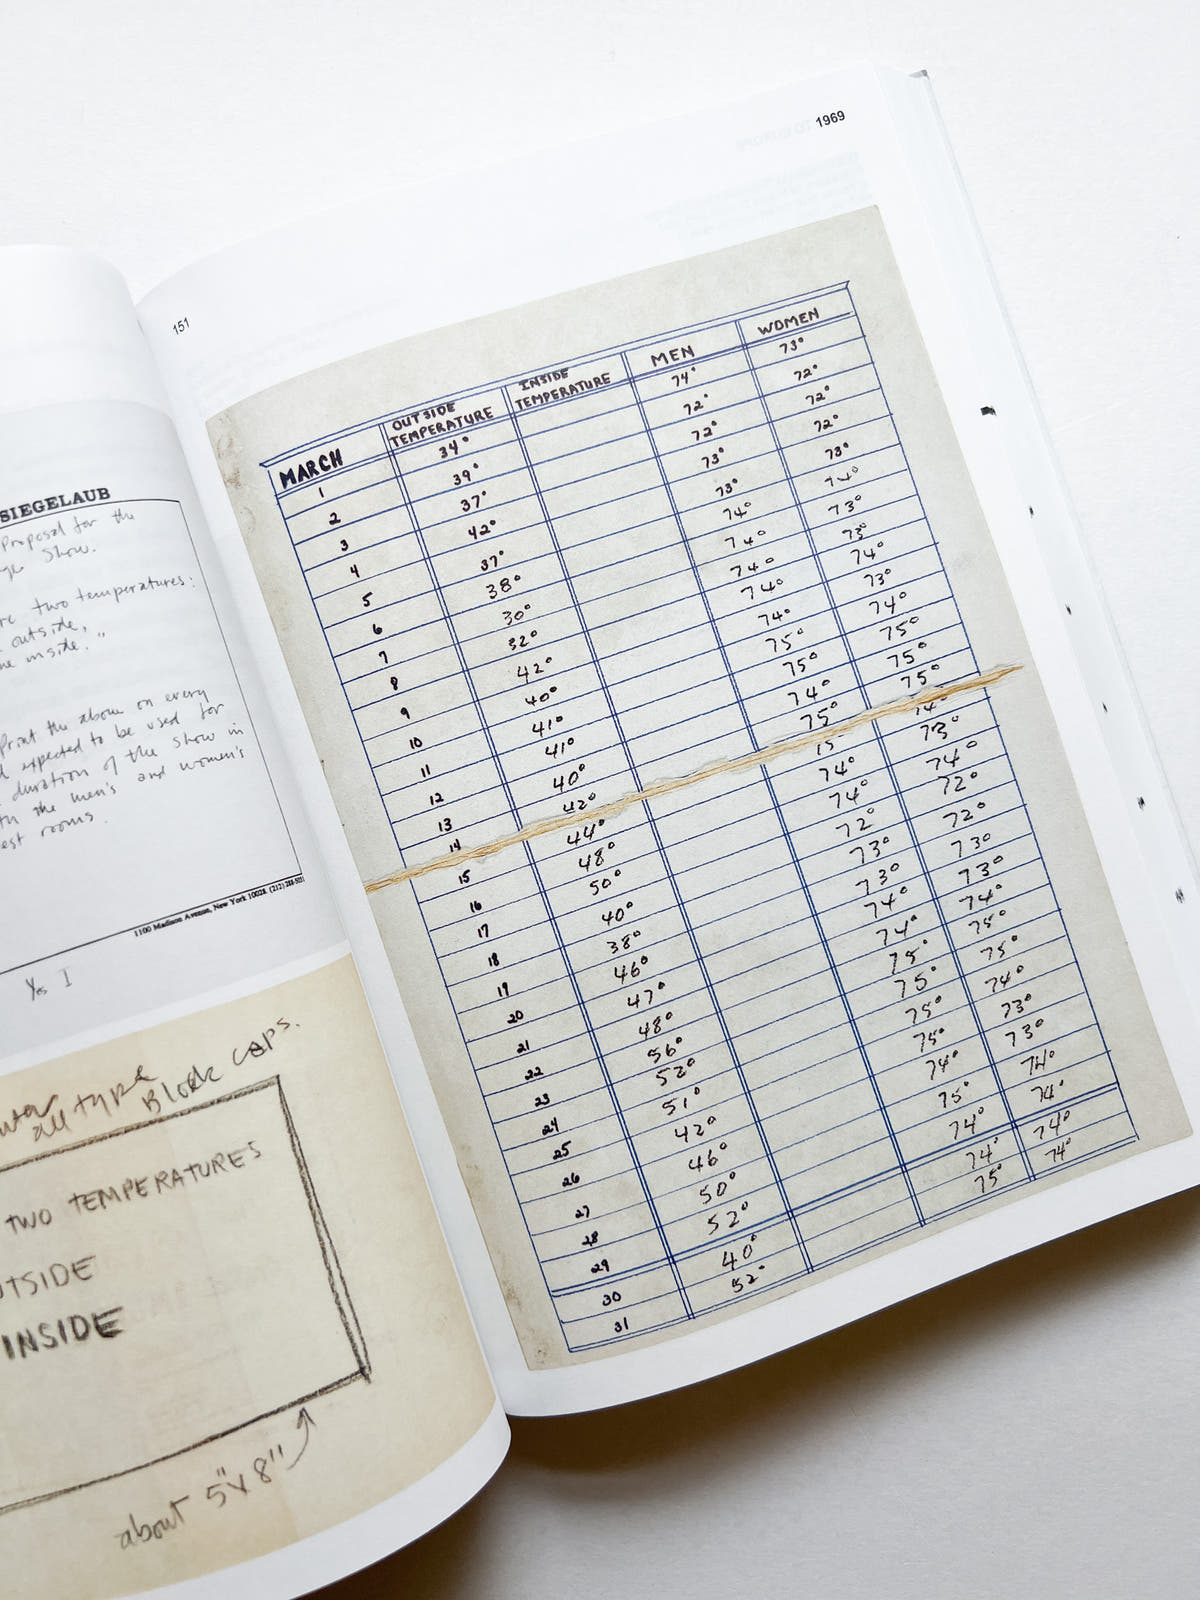 SIEGELAUB
Proposal for the
Show.
two temperatures:
outside,
inside."
Print the above on every
expected to be used for
duration of the show in
the men's and women's
rooms.
1100 Madison Avenue, New York 10028 (212) 288-5031
Yes I
all type
Block caps.
TWO TEMPERATURES
INSIDE
about 5"x8"
151
1969
MARCH OUTSIDE TEMPERATURE INSIDE TEMPERATURE MEN WOMEN
1 34° 74° 73°
2 39° 72° 72°
3 37° 72° 72°
4 42° 73° 72°
5 37° 73° 73°
6 38° 74° 74°
7 30° 74° 73°
8 32° 74° 73°
9 42° 74° 74°
10 40° 74° 73°
11 41° 75° 74°
12 41° 75° 75°
13 40° 74° 75°
14 42° 75° 75°
15 44° 75° 74°
16 48° 74° 73°
17 50° 74° 74°
18 40° 72° 72°
19 38° 73° 72°
20 46° 73° 73°
21 47° 74° 73°
22 48° 74° 74°
23 56° 75° 75°
24 52° 75° 75°
25 51° 75° 74°
26 42° 75° 73°
27 46° 74° 73°
28 50° 75° 74°
29 52° 74° 74°
30 40° 74° 74°
31 52° 75° 74°